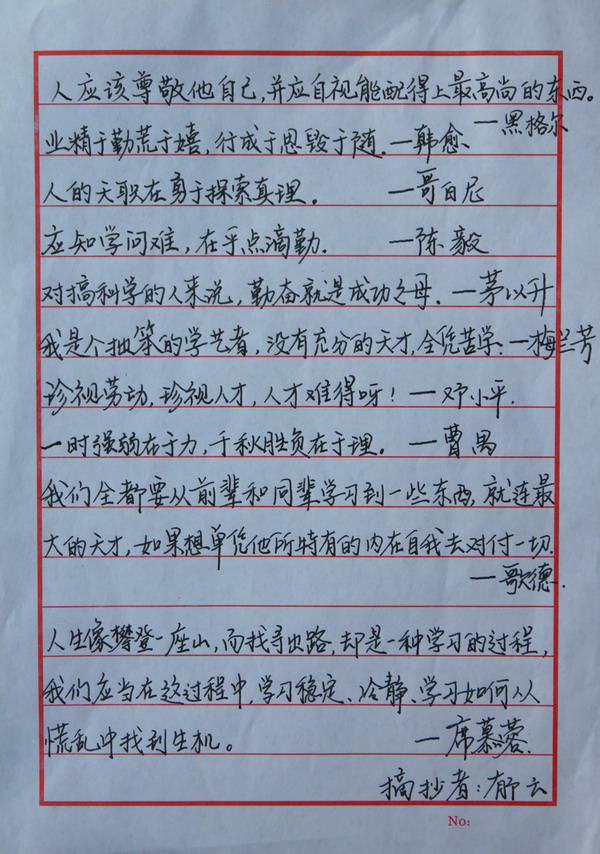 人应该尊敬他自己,并应自视能配得上最高尚的东西。
—黑格尔
业精于勤荒于嬉,行成于思毁于随.—韩愈.
人的天职在勇于探索真理。 —哥白尼
应知学问难,在乎点滴勤. —陈毅
对搞科学的人来说,勤奋就是成功之母.—茅以升
我是个拙笨的学艺者,没有充分的天才,全凭苦学.—梅兰芳
珍视劳动,珍视人才,人才难得呀!—邓小平.
一时强弱在于力,千秋胜负在于理。 —曹禺
我们全都要从前辈和同辈学习到一些东西,就连最
大的天才,如果想单凭他所特有的内在自我去对付一切.
—歌德.
人生像攀登一座山,而找寻出路,却是一种学习的过程,
我们应当在这过程中,学习稳定、冷静、学习如何从
慌乱中找到生机。 —席慕蓉.
摘抄者:郁云
No: